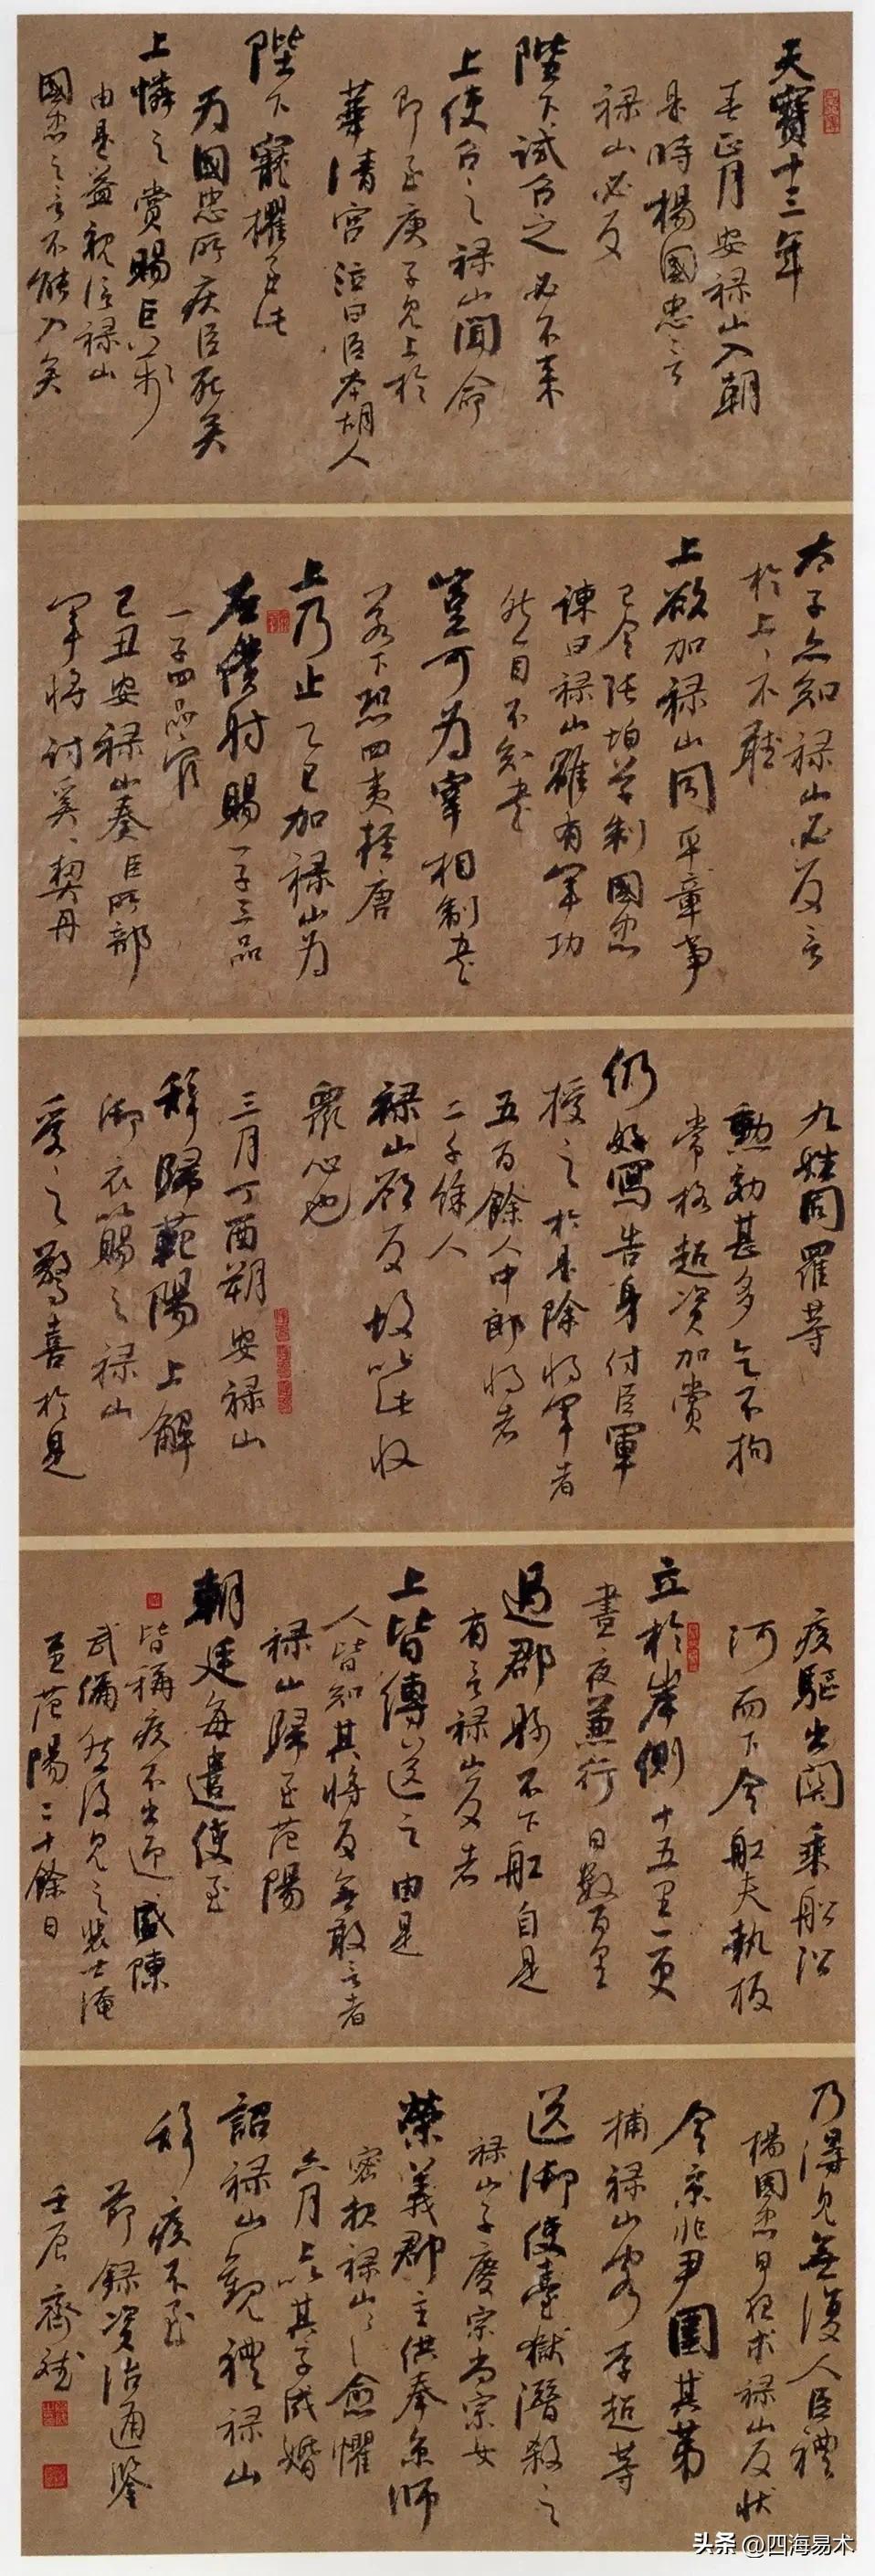 天寶十三年
春正月安祿山入朝
是時楊國忠言
祿山必反
陛下試召之必不来
上使召之祿山聞命
即至庚子見上於
華清宮泣曰臣本胡人
陛下寵擢至此
為國忠所疾臣死矣
上憐之賞賜巨萬
由是益親信祿山
國忠之言不能入矣
太子亦知祿山必反言
於上、不聽
上欲加祿山同平章事
已令張垍草制國忠
諫曰祿山雖有軍功
然目不知書
豈可為宰相制書
若下恐四夷輕唐
上乃止乙巳加祿山為
左僕射賜一子三品
一子四品官
己丑安祿山奏臣所部
軍將討奚、契丹
九姓同羅等
勳効甚多乞不拘
常格超資加賞
仍好寫告身付臣軍
授之於是除將軍者
五百餘人中郎將者
二千餘人
祿山欲反故以此收
眾心也
三月丁酉朔安祿山
辭歸範陽上解
御衣以賜之祿山
受之驚喜於是
疾驅出關乘船沿
河而下令船夫執板
立於岸側十五里一更
晝夜兼行日數百里
過郡縣不下船自是
有言祿山反者
上皆縛送之由是
人皆知其將反無敢言者
祿山歸至范陽
朝廷每遣使至
皆稱疾不出迎盛陳
武備然後見之裴士淹
至范陽二十餘日
乃得見無復人臣禮
楊國忠日夜求祿山反狀
令京兆尹圍其第
捕祿山客李超等
送御使臺獄潛殺之
祿山子慶宗尚宗女
榮義郡主供奉京師
密報祿山、愈懼
六月上以其子成婚
詔祿山觀禮祿山
辭疾不至
節錄資治通鑒
壬辰齊
头条 @四海易术